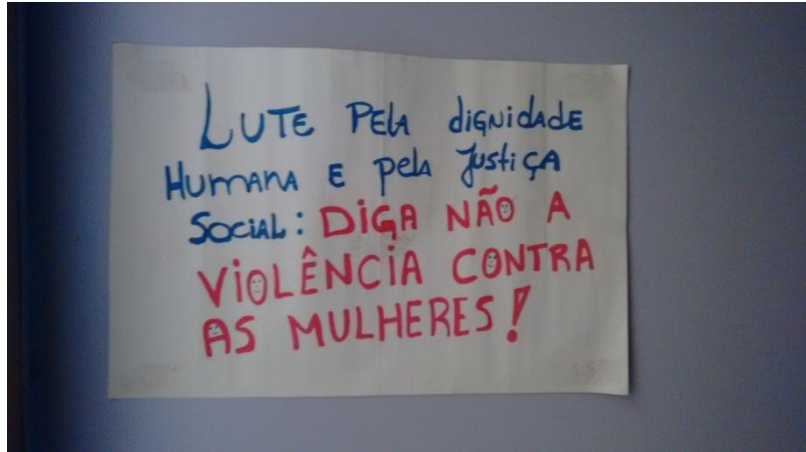 LUTE PELA diGNidAdE
HUMANA E pelA JustiÇA
SOCiAL: DiGA NÃO A
ViOLÊNCiA CONTRA
AS MULHERES!